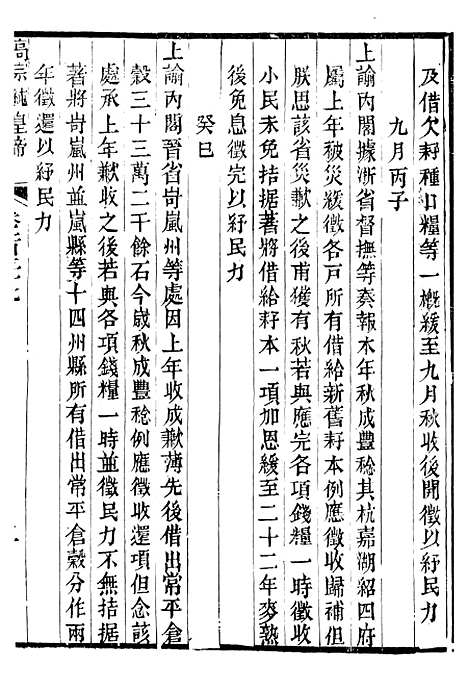 及借欠耔種口糧等一槪緩至九月秋收後開徵以紓民力
九月丙子
上諭內閣據浙省督撫等奏報本年秋成豐稔其杭嘉湖紹四府
屬上年被災緩徵各戶所有借給新舊耔本例應徵收歸補但
朕思該省災歉之後甫獲有秋若與應完各項錢糧一時徵收
小民未免拮据著將借給耔本一項加恩緩至二十二年麥熟
後免息徵完以紓民力
癸巳
上諭內閣晉省岢嵐州等處因上年收成歉薄先後借出常平倉
穀三十三萬二千餘石今歲秋成豐稔例應徵收還項但念該
處承上年歉收之後若與各項錢糧一時並徵民力不無拮据
著將岢嵐州並嵐縣等十四州縣所有借出常平倉穀分作兩
年徵還以紓民力
高宗純皇帝